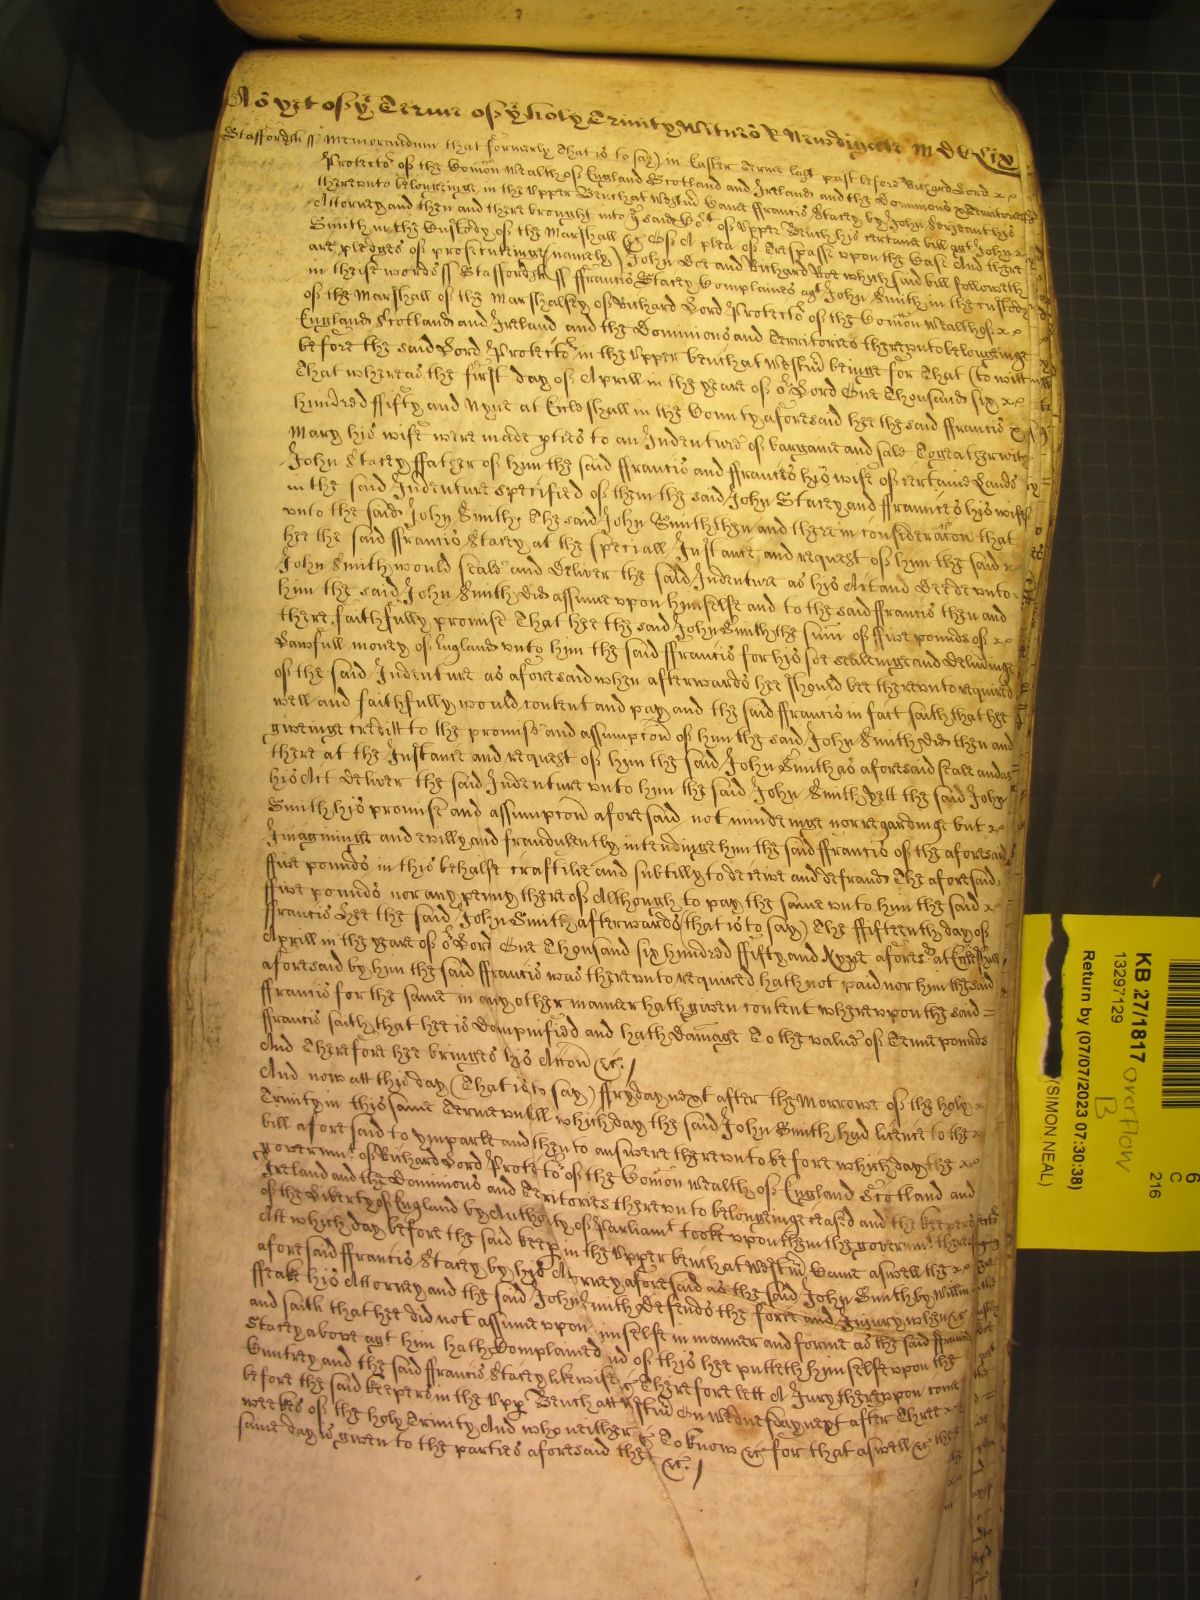 As yet of ye Terme of ye holy Trinity Witnes R Newdigate MDCLix
Staffordsh ss Memorandum that formerly That is to say) in Easter Terme last past before Richard Lord
Protector of the Comon Wealth of England Scotland and Ireland and the Dominions & Territories
thereunto belonginge in the Upper Bench at Westmr Came ffrancis Stacey by John Serjeant his
Attorney and then and there brought into ye said Cort of Upper Bench his certaine bill agt John
Smith in the Custody of the Marshall &c Of A plea of Trespasse upon the Case And there
are pledges of prosecutinge (namely) John Doe and Richard Roe which said bill followeth
in theise words ss Staffordsh ss ffrancis Stacey Complaines agt John Smith in the custody
of the Marshall of the Marshalsey of Richard Lord Protector of the Comon Wealth of
England Scotland and Ireland and the Dominions and Territories thereunto belonginge
before the said Lord Protector in the Upper bench at Westmr beinge for That (to witt
That whereas the first day of Aprill in the yeare of or Lord One Thousand six
hundred ffifty and Nyne at Ecleshall in the County aforesaid hee the said ffrancis &
Mary his wife were made pties to an Indenture of bargaine and sale Togeather with
John Stacey ffather of him the said ffrancis and ffrances his wife of certaine Lands
in the said Indenture specified of them the said John Stacey and ffrances his wiffe
unto the said John Smith The said John Smith then and there in consideration that
hee the said ffrancis Stacey at the speciall Instance and request of him the said
John Smith would seale and deliver the said Indenture as his Act and Deede unto
him the said John Smith did assume upon himselfe and to the said ffrancis then and
there faithfully promise That hee the said John Smith the sum of ffive pounds of
Lawfull money of England unto him the said ffrancis for his soe sealeinge and delivinge
of the said Indenture as aforesaid when afterwards hee should bee thereunto required
well and faithfully would content and pay and the said ffrancis in fact saith that hee
giveinge creditt to the promise and assumpcon of him the said John Smith did then and
there at the Instance and request of him the said John Smith as aforesaid seale and as
his Act deliver the said Indenture unto him the said John Smith Yett the said John
Smith his promise and assumpcon aforesaid not mindeinge nor regardinge but
Imagininge and evilly and fraudulently intendinge him the said ffrancis of the aforesaid
ffive pounds in this behalfe craftilie and subtilly to deceive and defraude The aforesaid
ffive pounds nor any penny thereof Although to pay the same unto him the said
ffrancis Hee the said John Smith afterwards (that is to say) The ffifteenth day of
Aprill in the yeare of or Lord One Thousand six hundred ffifty and Nyne aforesd at Ecleshall
aforesaid by him the said ffrancis was thereunto required hath not paid nor him the said
ffrancis for the same in any other manner hath given content whereupon the said =
ffrancis saith that hee is Dampnified and hath Damage To the value of Tenne pounds
And Therefore hee bringes his Accon &c. /
And now att this day (That is to say) ffryday next after the Morrowe of the holy
Trinity in this same Terme untill which day the said John Smith had licence to the
bill aforesaid to ymparle and then to answere thereunto before which day the
governmt of Richard Lord Protector of the Comon Wealth of England Scotland and
Ireland and the Dominions and Territories thereunto belonginge ceased and the keepers
of the Liberty of England by Authority of Parliamt tooke upon them the governmt thereof
Att which day before the said keeps in the Upper bench at Westmr Came aswell the
aforesaid ffrancis Stacey by his Attorney aforesaid as the said John Smith by Willm
ffeake his Attorney and the said John Smith Defends the force and Injury when &c
and saith that hee did not assume upon himselfe in manner and forme as the said ffrancis
Stacey above agt him hath Complained And of this hee putteth him selfe upon the
Cuntrey and the said ffrancis Stacey likewise &c Therefore lett A Jury thereupon come
before the said keepers in the Upp Bench att Westmr On Wednesday next after Three
weekes of the holy Trinity And who neither &c To know &c for that aswell &c the
same day is given to the parties aforesaid there &c. /
KB 27/1817 overflow
B
13297129
Return by (07/07/2023 07:30:38)
(SIMON NEAL)
6
C
216